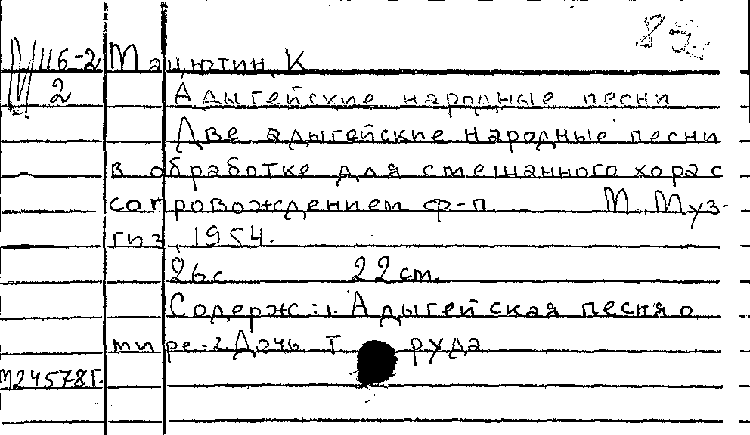 116-2 Мацютин К
2 Адыгейские народные песни
Две адыгейские народные песни
в обработке для смешанного хора с
сопровождением ф-п М. Муз-
гиз, 1954.
26с 22 см.
Содерж.: 1. Адыгейская песня о
мире. 2. Дочь Т руда
М24578г.